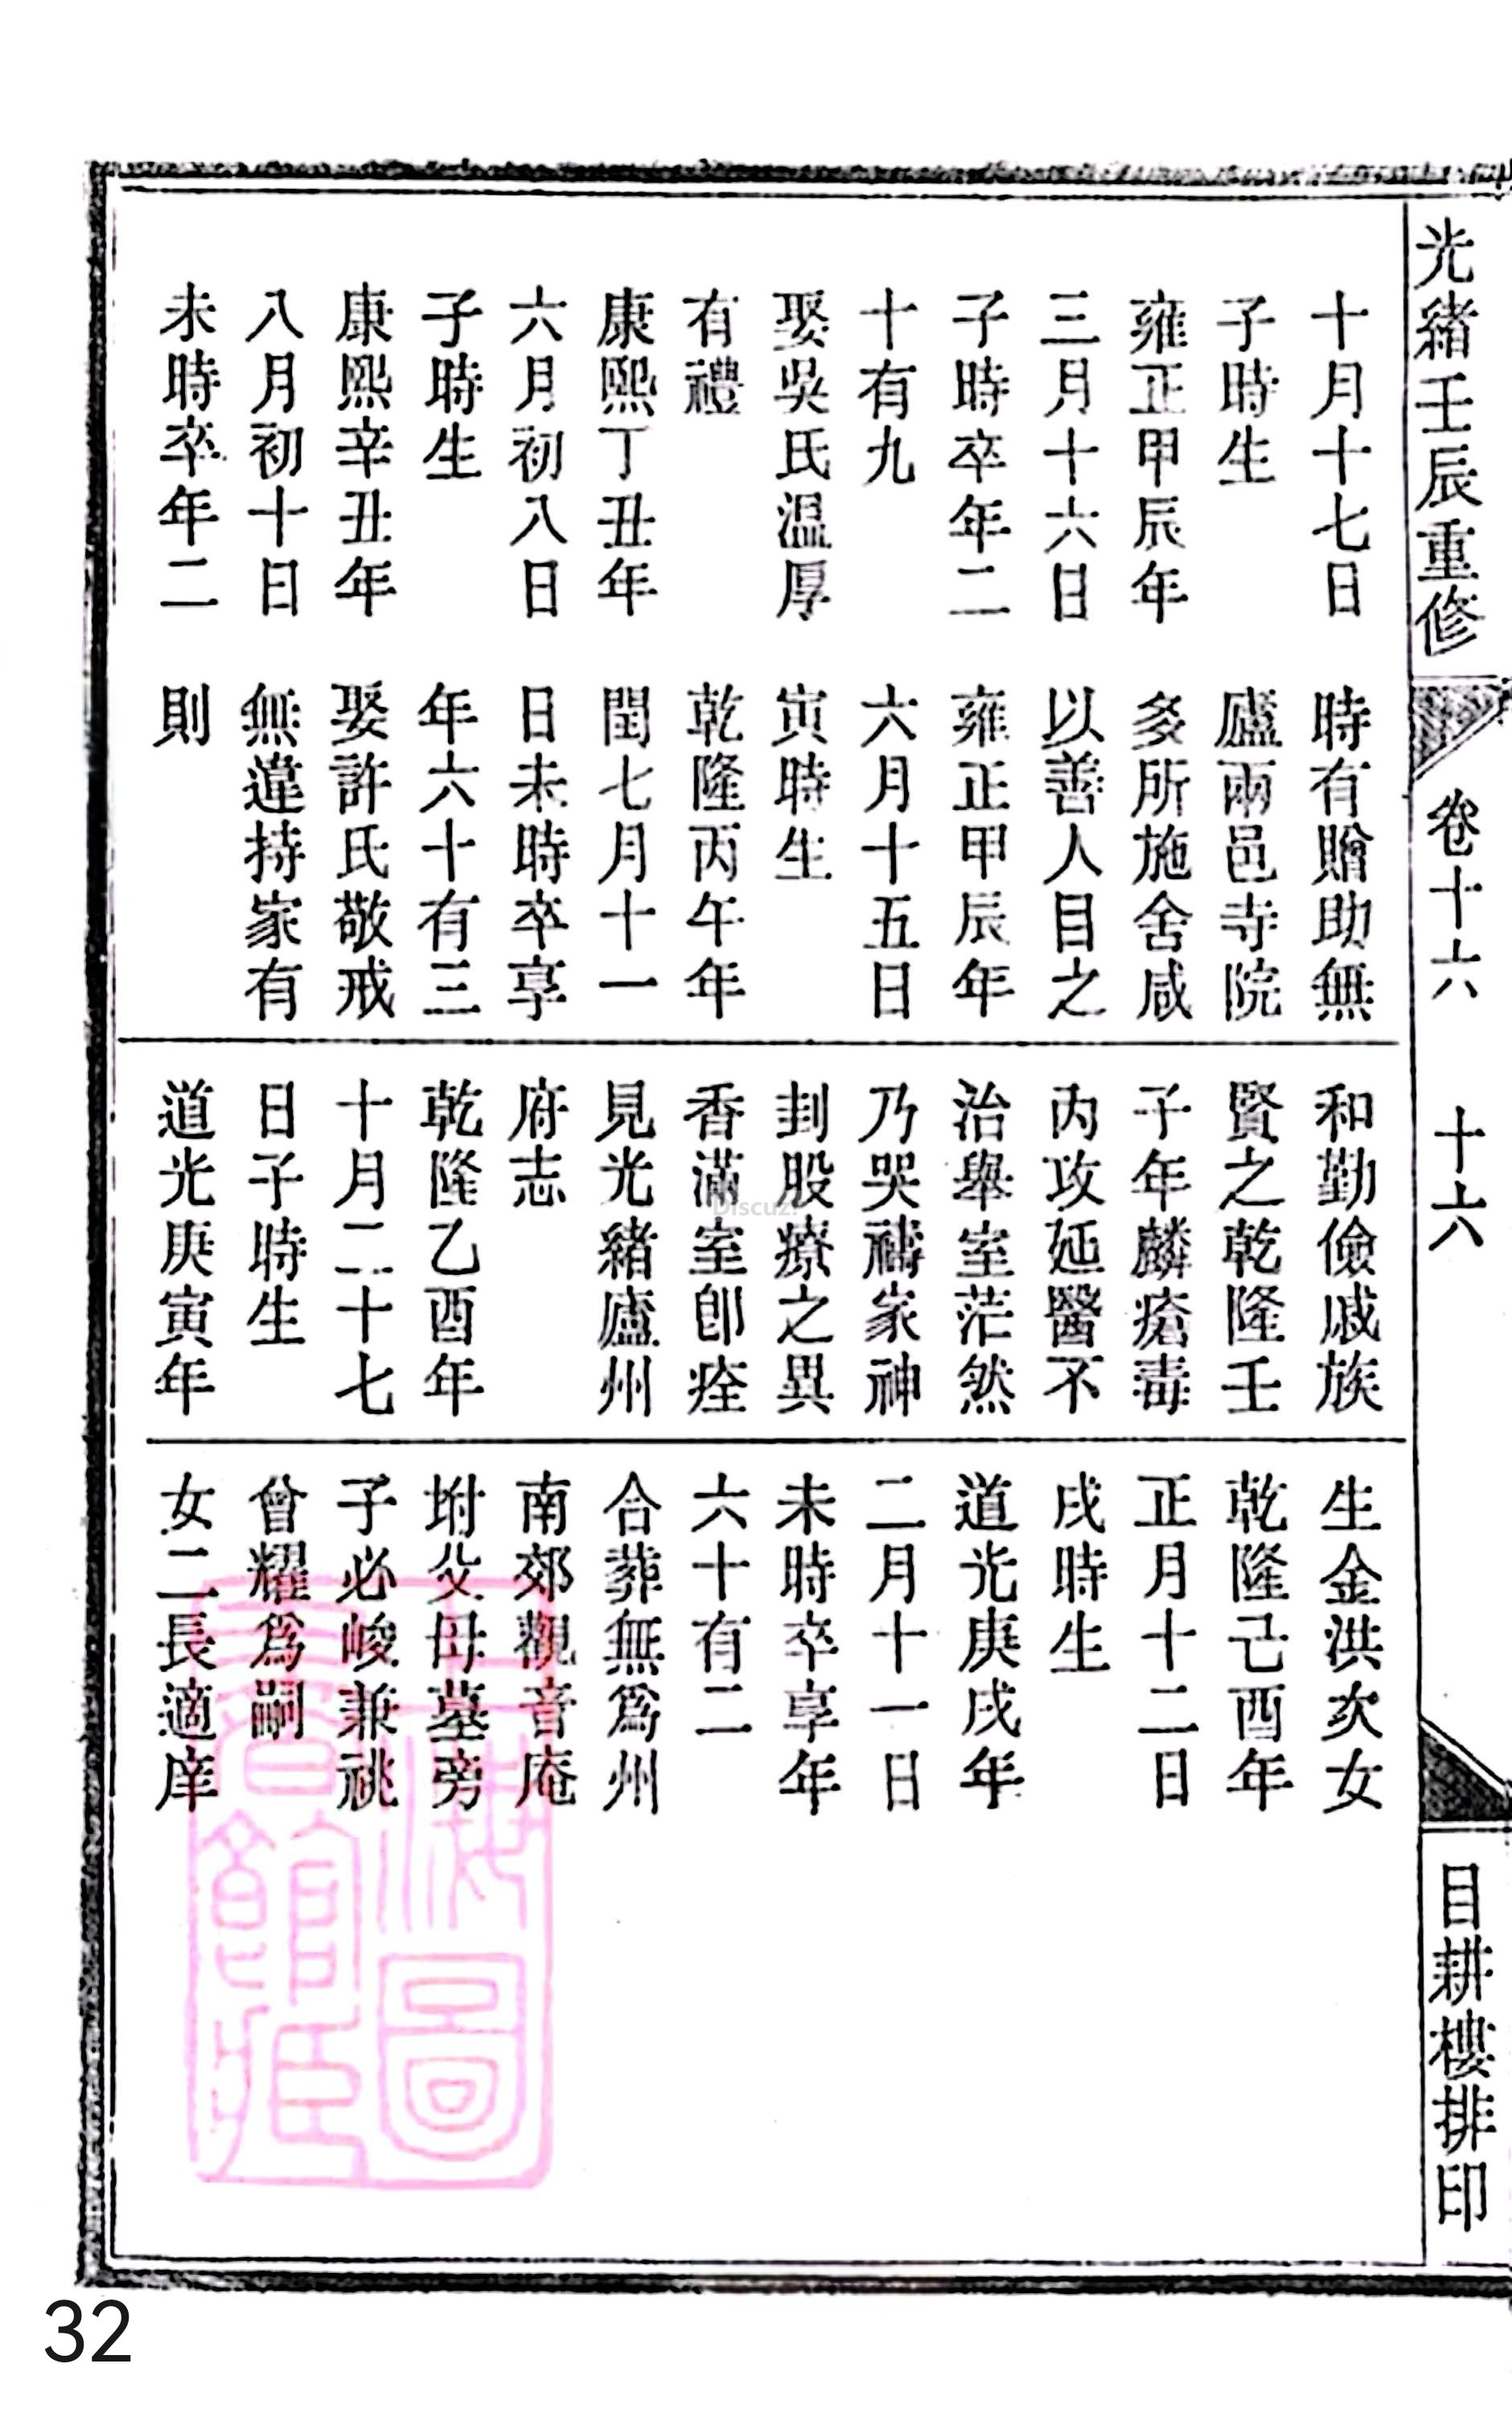 光緒壬辰重修
卷十六
十六
目耕樓排印
十月十七日
子時生
雍正甲辰年
三月十六日
子時卒年二
十有九
娶吳氏温厚
有禮
康熙丁丑年
六月初八日
子時生
康熙辛丑年
八月初十日
未時卒年二
時有贈助無
廬兩邑寺院
多所施舍咸
以善人目之
雍正甲辰年
六月十五日
寅時生
乾隆丙午年
閏七月十一
日未時卒享
年六十有三
娶許氏敬戒
無違持家有
則
和勤儉戚族
賢之乾隆壬
子年麟瘡毒
内攻延醫不
治舉室茫然
乃哭禱家神
刲股療之異
香滿室卽痊
見光緒廬州
府志
乾隆乙酉年
十月二十七
日子時生
道光庚寅年
生金洪次女
乾隆己酉年
正月十二日
戌時生
道光庚戌年
二月十一日
未時卒享年
六十有二
合葬無爲州
南郊觀音庵
坿父母墓旁
子必峻兼祧
曾耀爲嗣
女二長適庠
上海圖書館藏
Discuz!
32